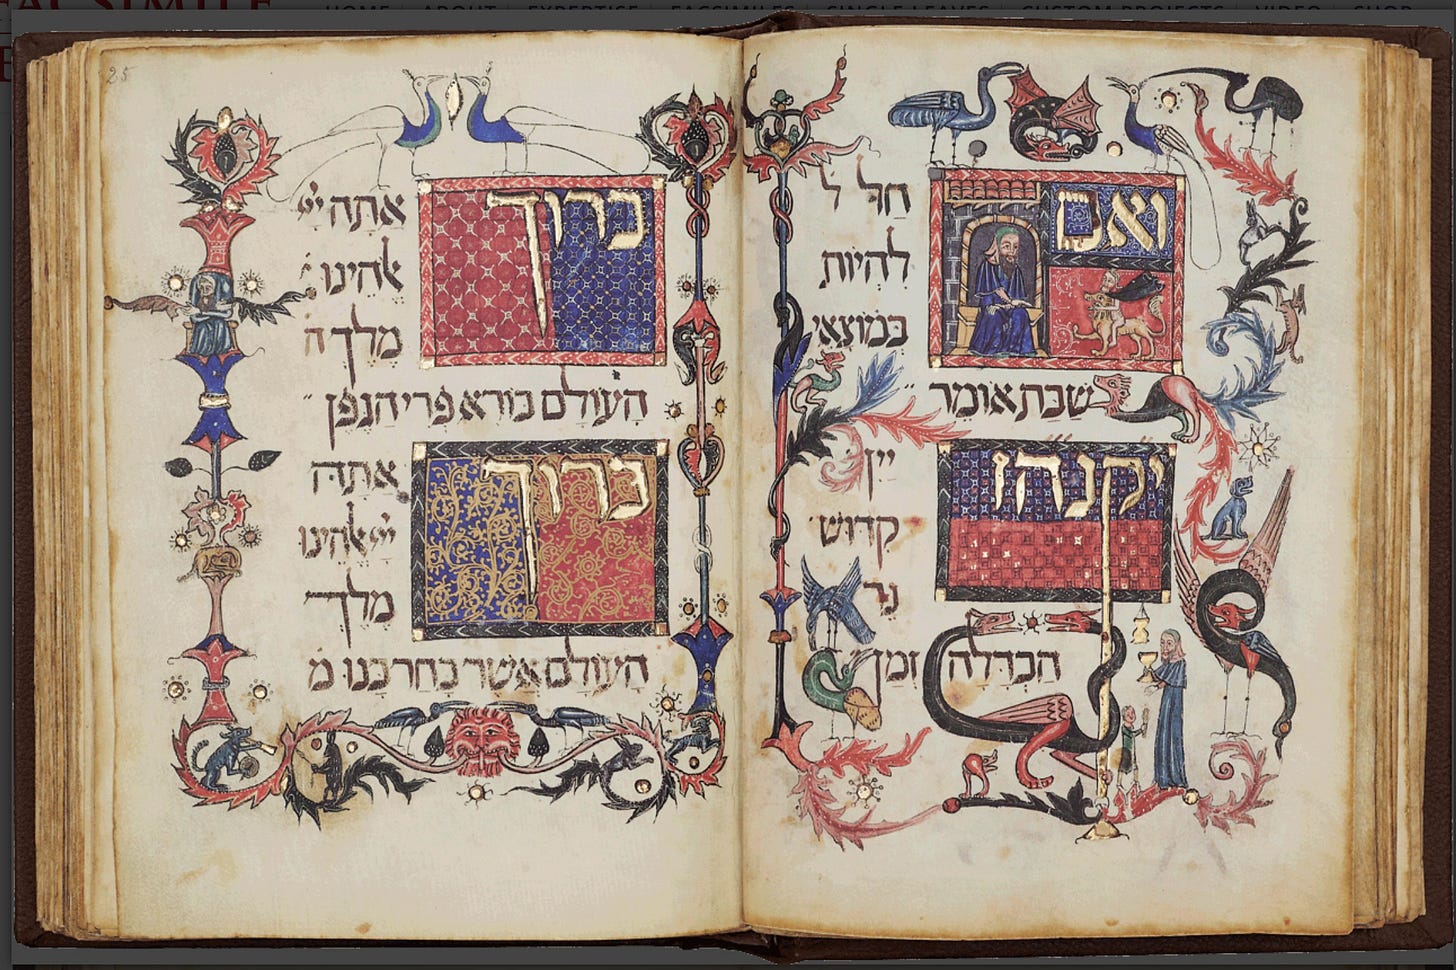 FACSIMILE HOME ABOUT EXPERTISE FACSIMILES SINGLE LEAVES CUSTOM PROJECTS VIDEO SHOP
ואם חל ל
להיות
במוצאי
שבת אומר
יקנהז יין
קדוש
נר
הבדלה זמן
25
ברוך אתה יי
אלהינו
מלך ה
העולם בורא פרי הגפן
ברוך אתה
יי אלהינו
מלך
העולם אשר בחר בנו מ